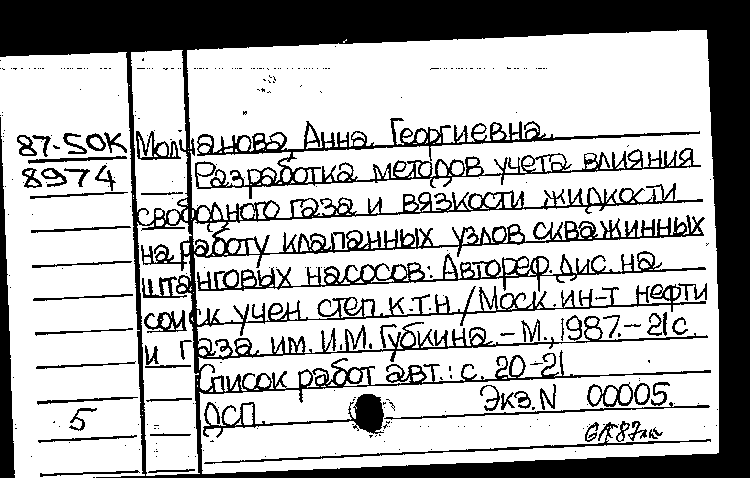 87-SOK Молчанова, Анна Георгиевна.
8974 Разработка методов учета влияния
свободного газа и вязкости жидкости
на работу клапанных узлов скважинных
штанговых насосов: Автореф. дис. на
соиск учен. степ. к.т.н. / Моск. ин-т нефти
и газа им. И.М. Губкина. - М., 1987. - 21 с.
Список работ авт.: с. 20-21.
5 ДСП. Экз. N 00005.